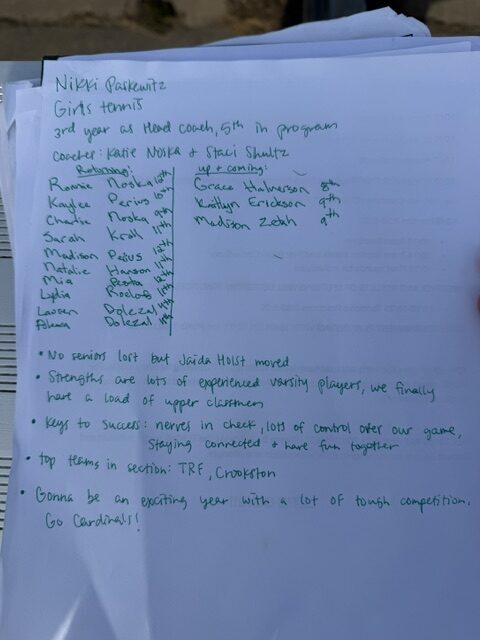 Nikki Paskewitz
Girls tennis
3rd year as Head coach, 5th in program
Coaches: Katie Noska + Staci Shultz
Returning:
Noska 10th
Kaylee Perius 10th
Charlie Noska 9th
Sarah Kroll 11th
Madison Perius 12th
Natalie Hanson 11th
Mia 12th
Lydia Roelofs
Lauren Dolezal
Dolezal
up + coming:
Grace Halverson 8th
Kaitlyn Erickson 9th
Madison Zetah 9th
• No seniors lost but Jaida Holst moved
• Strengths are lots of experienced varsity players, we finally
have a load of upper classmen
• Keys to success: nerves in check, lots of control over our game,
staying connected + have fun together
• Top teams in section: TRF, Crookston
• Gonna be an exciting year with a lot of tough competition.
Go Cardinals!